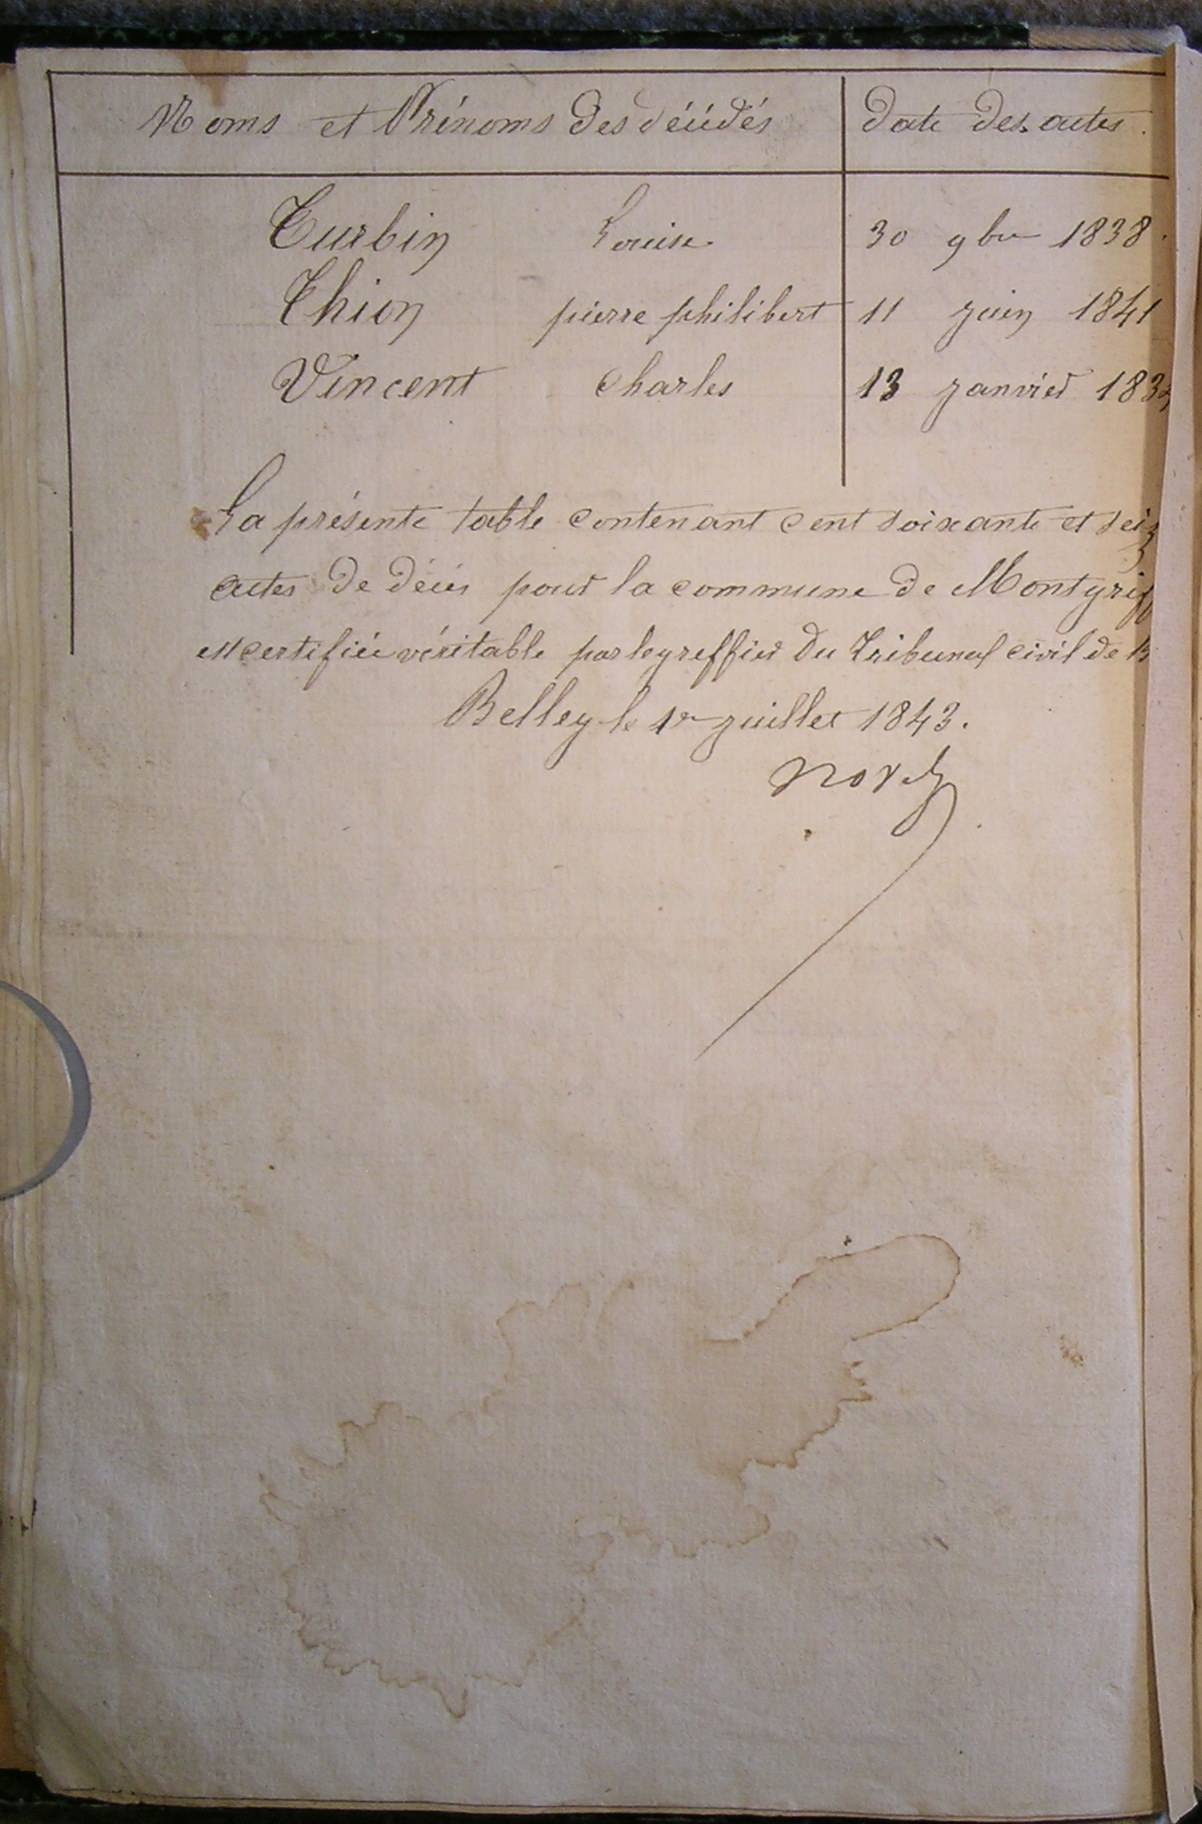 Noms et Prénoms des décédés date des actes.
Turbin Louise 30 9bre 1838.
Thion pierre philibert 11 juin 1841
Vincent Charles 13 janvier 183
La présente table contenant cent soixante et seiz
actes de décès pour la commune de Montgriff
est certifiée véritable par le greffier du Tribunal civil de B
Belley le 1er juillet 1843.